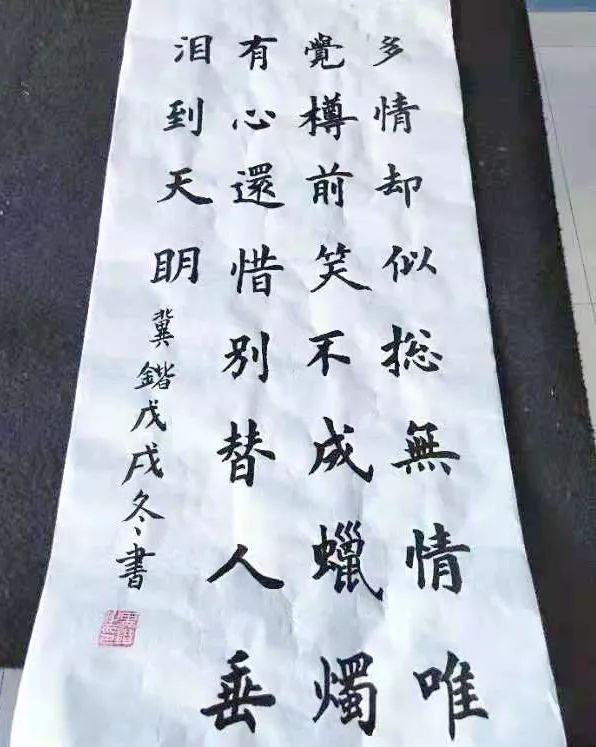 多情却似捴無情唯
覺樽前笑不成蠟燭
有心還惜别替人垂
泪到天明
冀鍇戊戌冬書